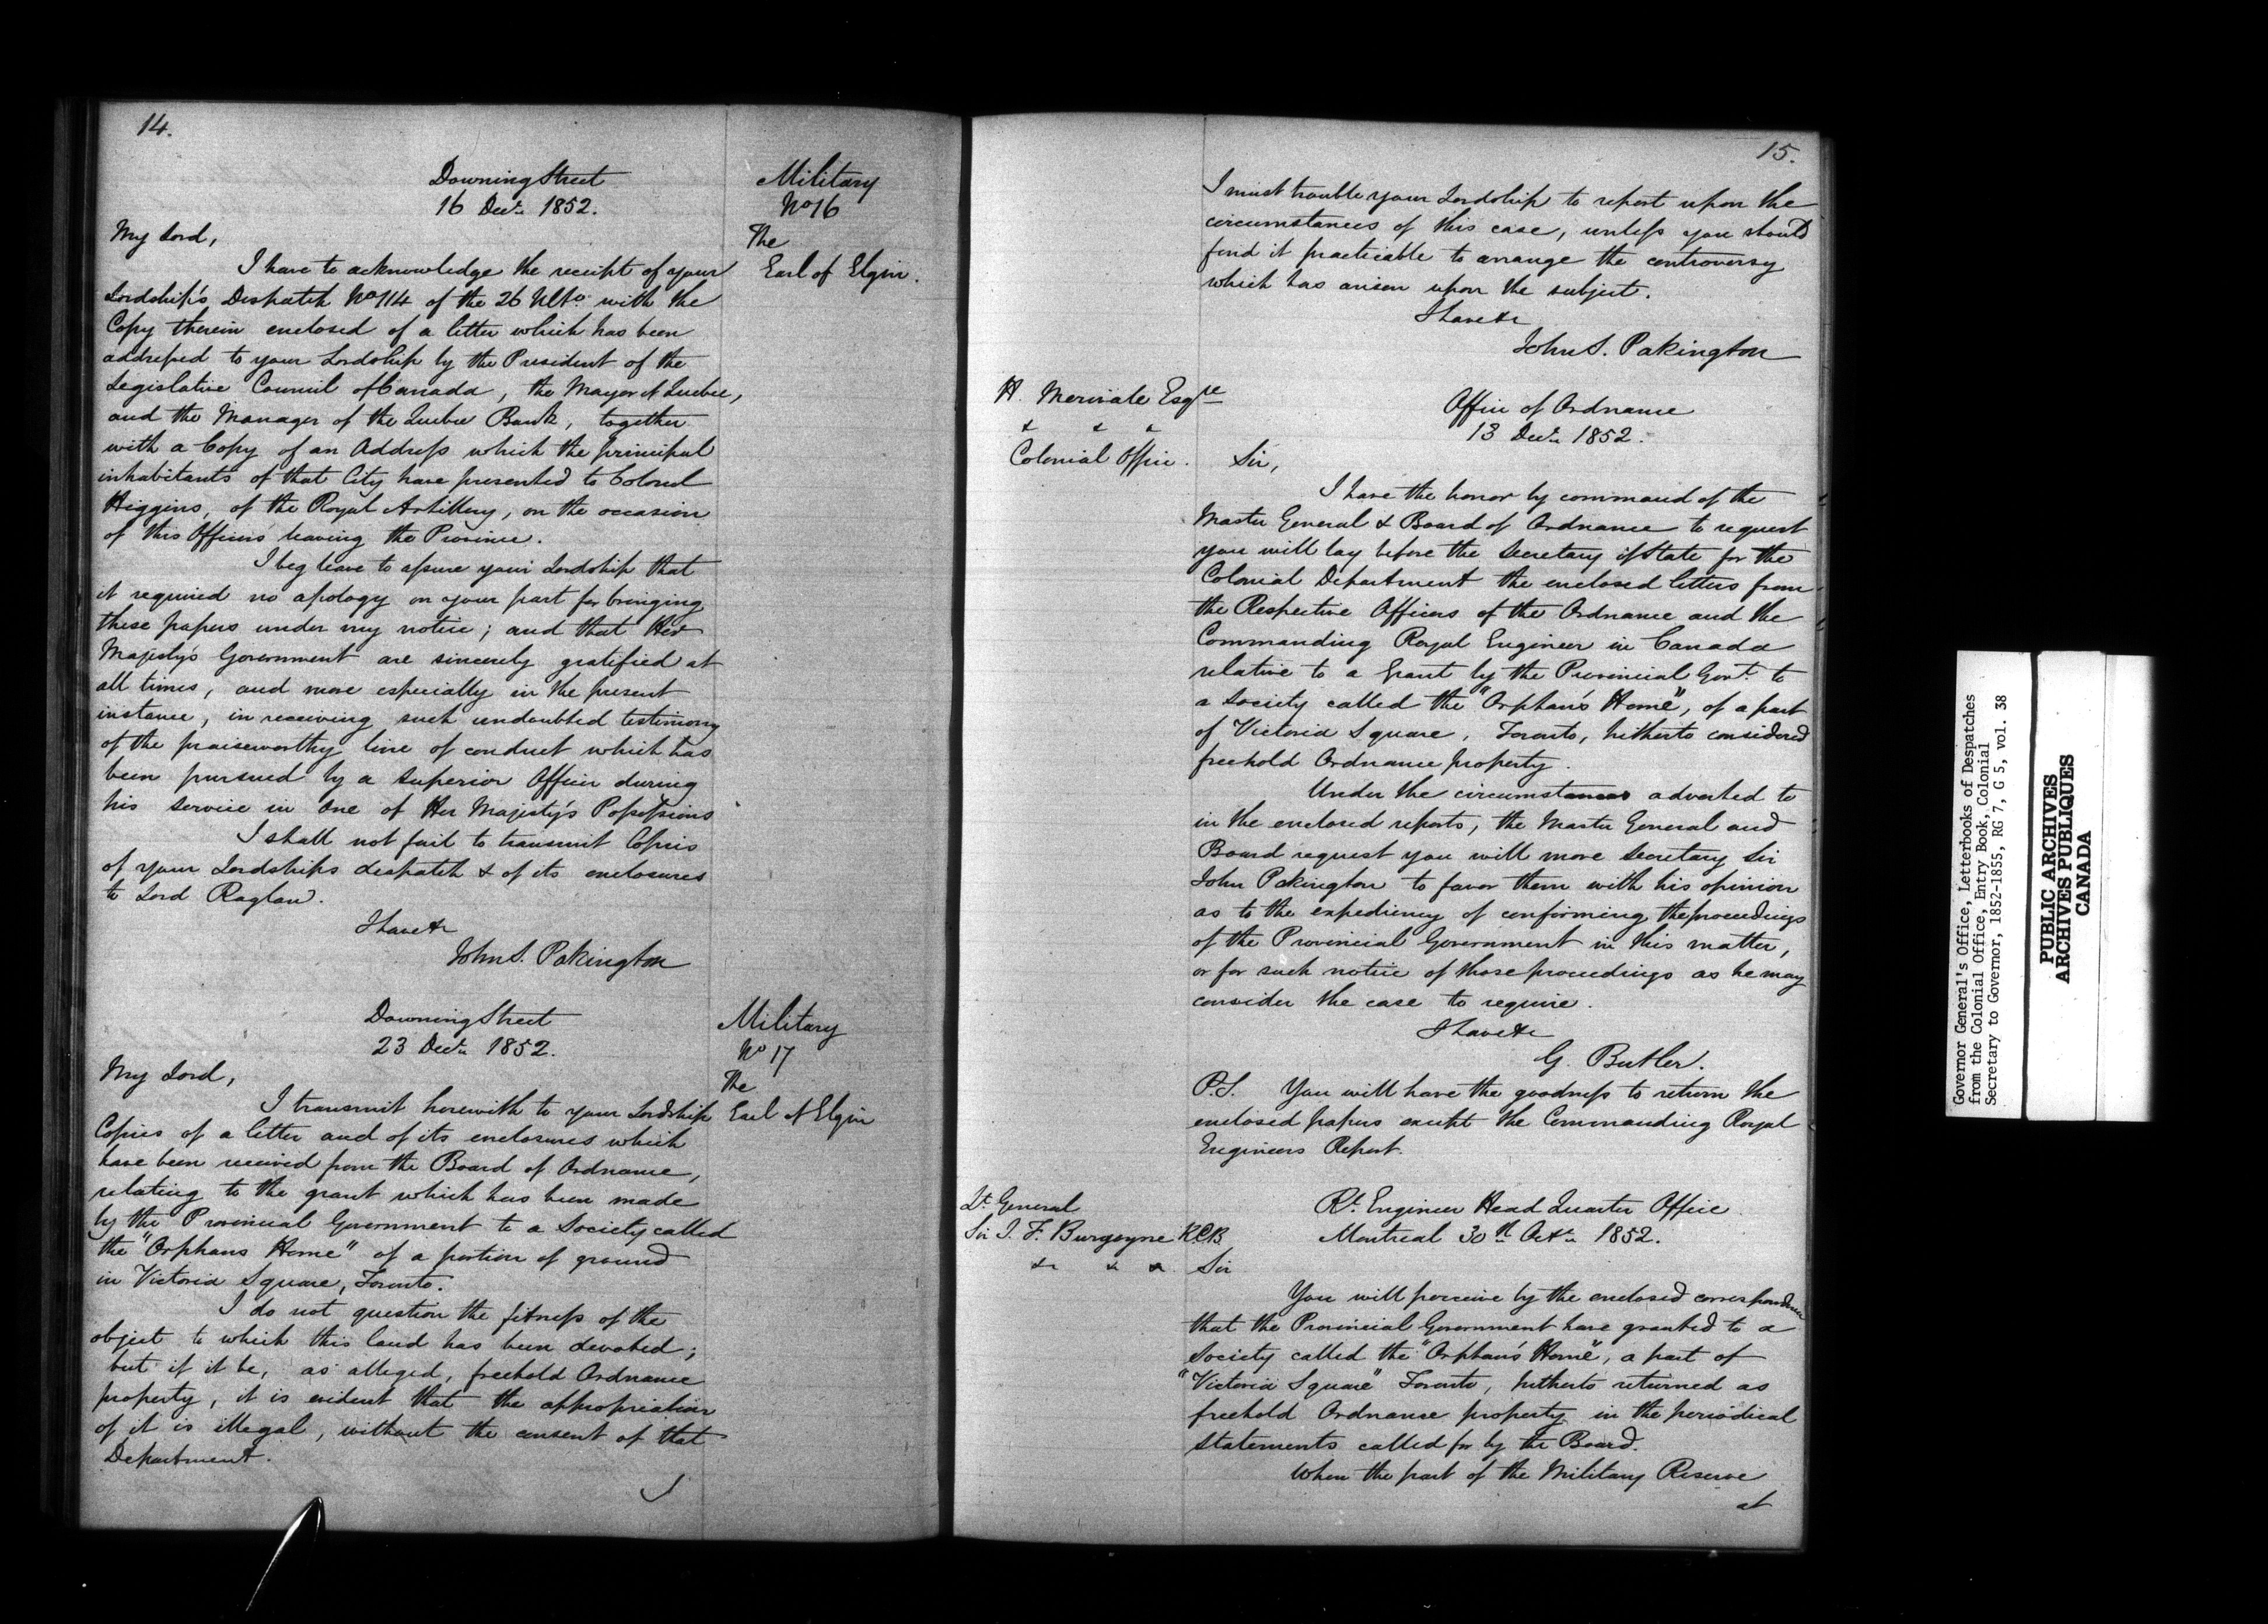 14.
Downing Street
16 Decr. 1852.
Military
No 16
The
Earl of Elgin.
My Lord,
I have to acknowledge the receipt of your
Lordship's Despatch No 114 of the 26 Ulto. with the
Copy therein enclosed of a letter which has been
addressed to your Lordship by the President of the
Legislative Council of Canada, the Mayor of Quebec,
and the Manager of the Quebec Bank, together
with a Copy of an Address which the principal
inhabitants of that City have presented to Colonel
Higgins, of the Royal Artillery, on the occasion
of this Officer's leaving the Province.
I beg leave to assure your Lordship that
it required no apology on your part for bringing
these papers under my notice; and that Her
Majesty's Government are sincerely gratified at
all times, and more especially in the present
instance, in receiving such undoubted testimony
of the praiseworthy line of conduct which has
been pursued by a Superior Officer during
his service in one of Her Majesty's Possessions
I shall not fail to transmit Copies
of your Lordships despatch & of its enclosures
to Lord Raglan.
I have &c
John S. Pakington
Downing Street
23 Decr. 1852.
Military
No 17
The
Earl of Elgin
My Lord,
I transmit herewith to your Lordship
Copies of a letter and of its enclosures which
have been received from the Board of Ordnance,
relating to the grant which has been made
by the Provincial Government to a Society called
the "Orphans Home" of a portion of ground
in Victoria Square, Toronto.
I do not question the fitness of the
object to which this land has been devoted;
but if it be, as alleged, freehold Ordnance
property, it is evident that the appropriation
of it is illegal, without the consent of that
Department.
I
15.
I must trouble your Lordship to report upon the
circumstances of this case, unless you should
find it practicable to arrange the controversy
which has arisen upon the subject.
I have &c
John S. Pakington
H. Merivale Esqre
& & &
Colonial Office.
Office of Ordnance
13 Decr. 1852.
Sir,
I have the honor by command of the
Master General & Board of Ordnance to request
you will lay before the Secretary of State for the
Colonial Department the enclosed letters from
the Respective Officers of the Ordnance and the
Commanding Royal Engineer in Canada
relative to a Grant by the Provincial Govt. to
a Society called the "Orphan's Home", of a part
of Victoria Square, Toronto, hitherto considered
freehold Ordnance property.
Under the circumstances adverted to
in the enclosed reports, the Master General and
Board request you will move Secretary Sir
John Pakington to favor them with his opinion
as to the expediency of confirming the proceedings
of the Provincial Government in this matter,
or for such notice of those proceedings as he may
consider the case to require.
I have &c
G. Butler.
P.S. You will have the goodness to return the
enclosed papers except the Commanding Royal
Engineers Report.
Lt. General
Sir J. F. Burgoyne K.C.B.
& & &
Rl. Engineer Head Quarter Office
Montreal 30th Octr. 1852.
Sir
You will perceive by the enclosed correspondence
that the Provincial Government have granted to a
Society called the "Orphan's Home", a part of
"Victoria Square" Toronto, hitherto returned as
freehold Ordnance property in the periodical
statements called for by the Board.
When the part of the Military Reserve
at
Governor General's Office, Letterbooks of Despatches
from the Colonial Office, Entry Book, Colonial
Secretary to Governor, 1852-1855, RG 7, G 5, vol. 38
PUBLIC ARCHIVES
ARCHIVES PUBLIQUES
CANADA